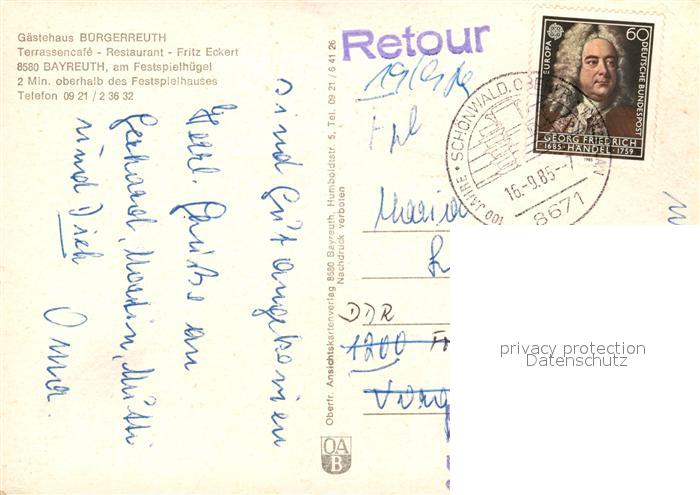 Gästehaus BÜRGERREUTH
Terrassencafé - Restaurant - Fritz Eckert
8580 BAYREUTH, am Festspielhügel
2 Min. oberhalb des Festspielhauses
Telefon 09 21 / 2 36 32
sind Gut angekomen
Herzl. Grüße an
Gerhard, Martin, Mutti
und Dich Oma.
Oberfr. Ansichtskartenverlag 8580 Bayreuth, Humboldtstr. 5, Tel. 09 21 / 6 41 26
Nachdruck verboten
OA
B
Retour
EUROPA
60
DEUTSCHE BUNDESPOST
GEORG FRIEDRICH
1685 · HÄNDEL · 1759
1985
100 JAHRE · SCHÖNWALD
16.-9.85.-
8671
Maria
DDR
1200
privacy protection
Datenschutz